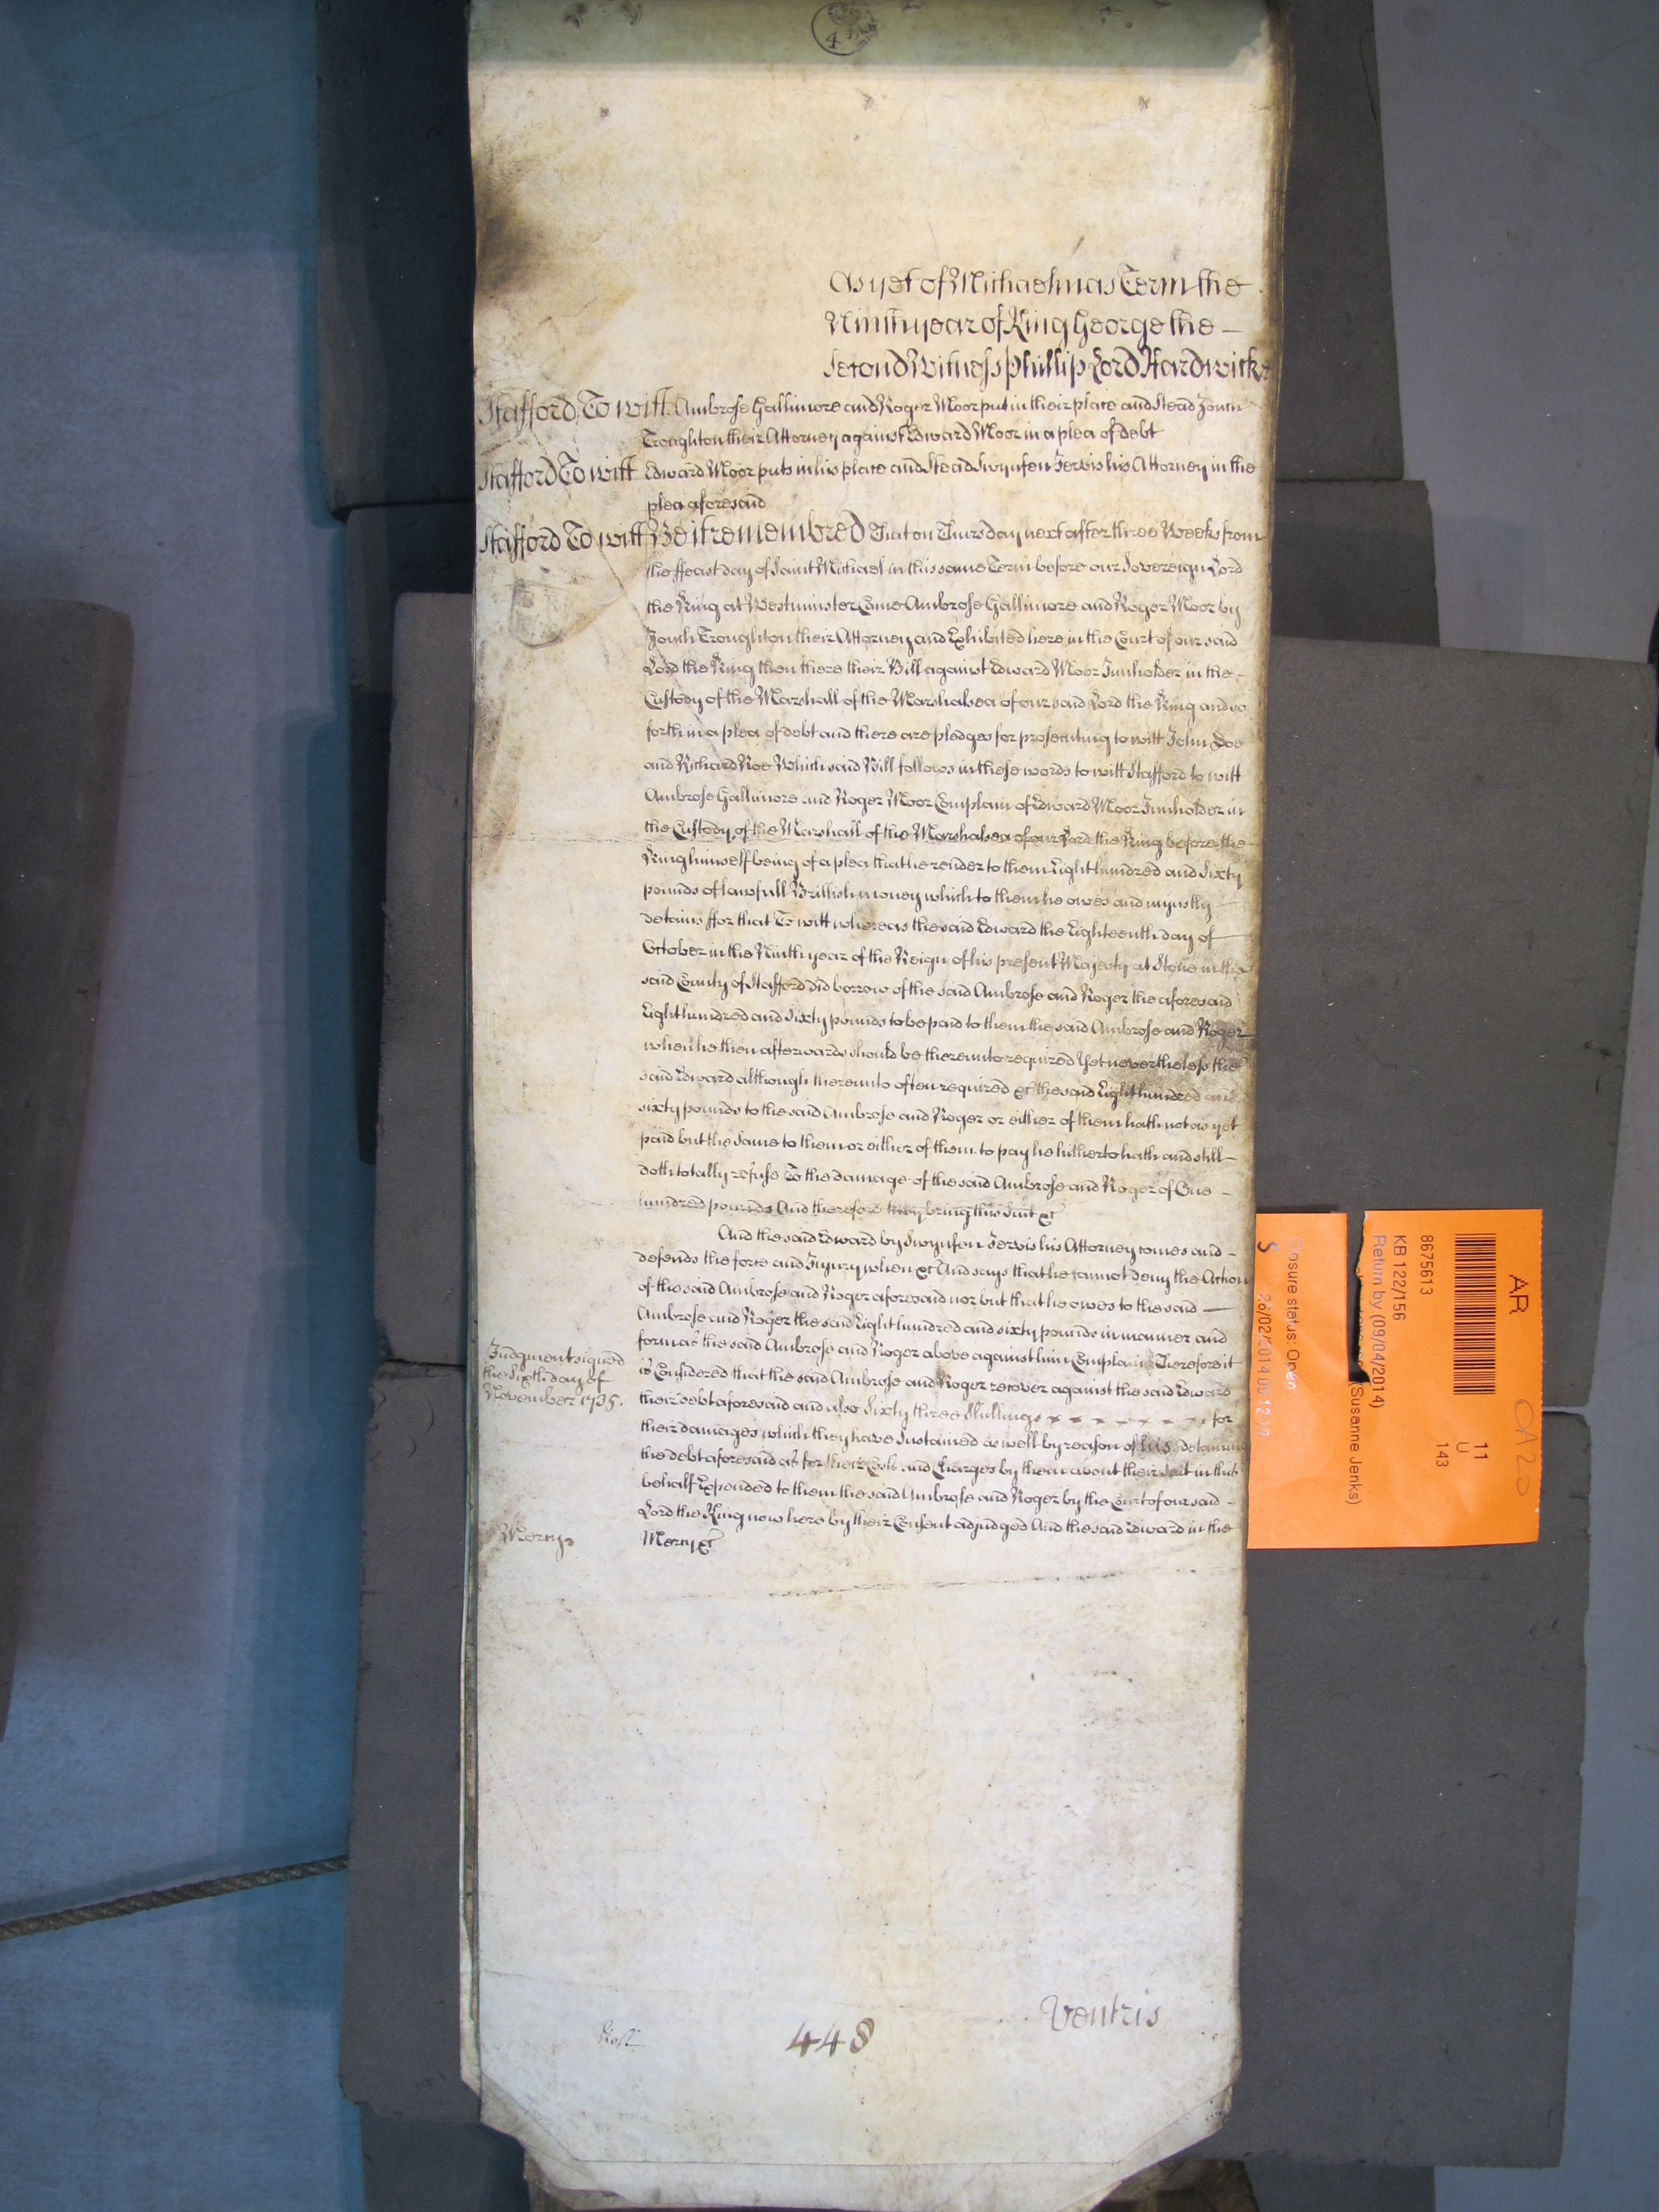 4
As yet of Michaelmas Term the
Ninth year of King George the
Second Witness Phillip Lord Hardwicke
Stafford To witt Ambrose Gallimore and Roger Moor put in their place and Stead Zouch
Troughton their Attorney against Edward Moor in a plea of debt
Stafford To witt Edward Moor puts in his place and Stead Swynfen Jervis his Attorney in the
plea aforesaid
Stafford To witt Be it remembred That on Thursday next after three Weeks from
the ffeast day of Saint Michael in this same Term before our Sovereign Lord
the King at Westminster Came Ambrose Gallimore and Roger Moor by
Zouch Troughton their Attorney and Exhibited here in the Court of our said
Lord the King then there their Bill against Edward Moor Innholder in the
Custody of the Marshall of the Marshalsea of our said Lord the King and so
forth in a plea of debt and there are pledges for prosecuting to witt John Doe
and Richard Roe Which said Bill follows in these words to witt Stafford to witt
Ambrose Gallimore and Roger Moor Complain of Edward Moor Innholder in
the Custody of the Marshall of the Marshalsea of our Lord the King before the
King himself being of a plea that he render to them Eight hundred and Sixty
pounds of lawfull Brittish money which to them he owes and unjustly
detains ffor that To witt whereas the said Edward the Eighteenth day of
October in the Ninth year of the Reign of his present Majesty at Stone in the
said County of Stafford did borrow of the said Ambrose and Roger the aforesaid
Eight hundred and Sixty pounds to be paid to them the said Ambrose and Roger
when he then afterwards should be thereunto required Yet nevertheless the
said Edward although thereunto often required &c the said Eight hundred and
sixty pounds to the said Ambrose and Roger or either of them hath not as yet
paid but the same to them or either of them to pay he hitherto hath and still
doth totally refuse To the damage of the said Ambrose and Roger of One
hundred pounds And therefore they bring this Suit &c
And the said Edward by Swynfen Jervis his Attorney comes and
defends the force and Injury when &c And says that he cannot deny the Action
of the said Ambrose and Roger aforesaid nor but that he owes to the said
Ambrose and Roger the said Eight hundred and sixty pounds in manner and
form as the said Ambrose and Roger above against him Complain Therefore it
Judgment signed
the Sixth day of
November 1735.
is Considered that the said Ambrose and Roger recover against the said Edward
their debt aforesaid and also Sixty three Shillings x x x x x x x for
their damages which they have Sustained as well by reason of his detaining
the debt aforesaid as for their Costs and Charges by them about their Suit in this
behalf Expended to them the said Ambrose and Roger by the Court of our said
Lord the King now here by their Consent adjudged And the said Edward in the
Mercy
Mercy &c
448
Ventris
AR
8675613
KB 122/156
Return by (09/04/2014)
(Susanne Jenks)
Closure status: Open
S
11
U
143